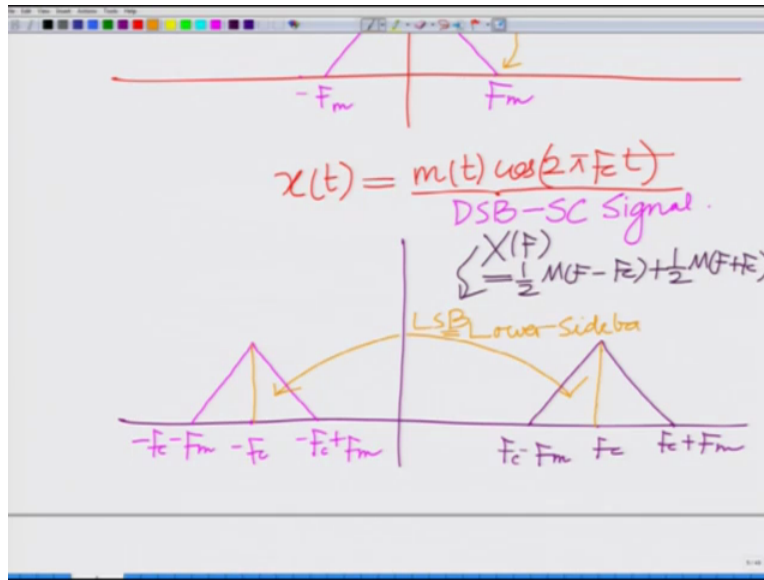 -Fm Fm
x(t) = m(t) cos(2πFct)
DSB-SC Signal.
X(F)
= 1/2 M(F - Fc) + 1/2 M(F + Fc)
LSB Lower-Sideba
-Fc-Fm -Fc -Fc+Fm Fc-Fm Fc Fc+Fm